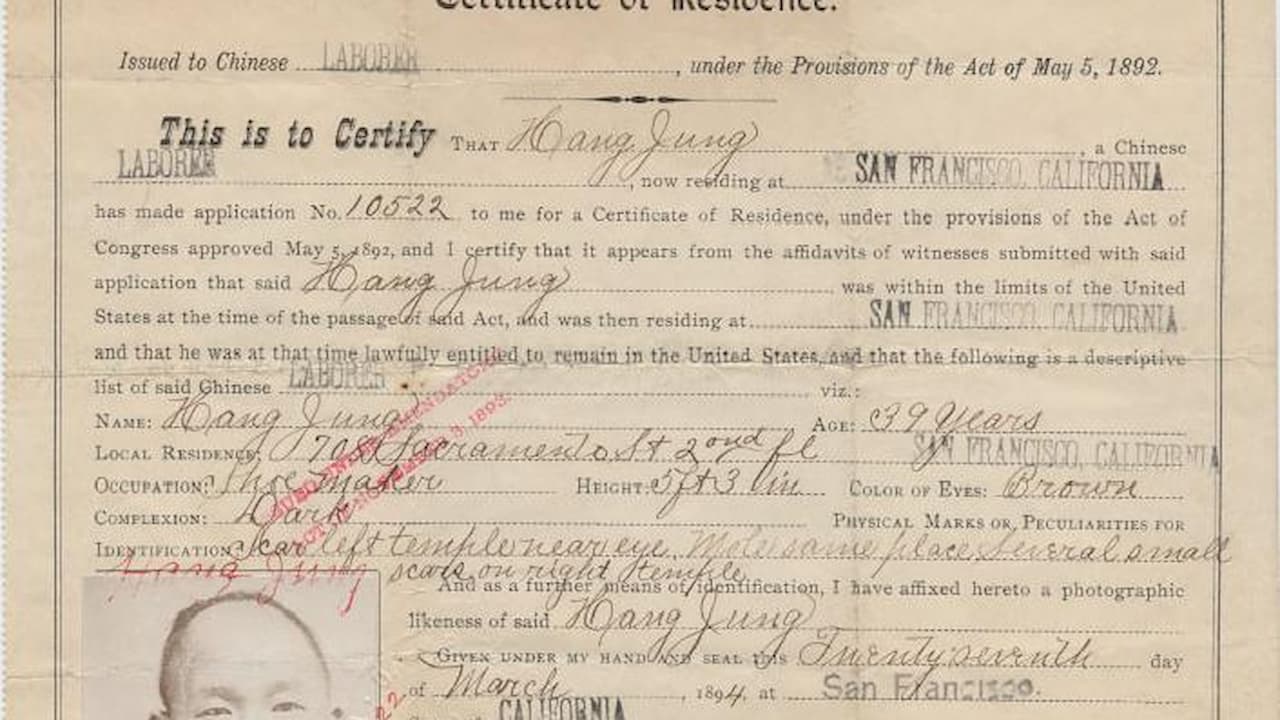 Certificate of Residence.
Issued to Chinese LABORER, under the Provisions of the Act of May 5, 1892.
This is to Certify THAT Hang Jung, a Chinese
LABORER, now residing at SAN FRANCISCO, CALIFORNIA
has made application No. 10522 to me for a Certificate of Residence, under the provisions of the Act of
Congress approved May 5, 1892, and I certify that it appears from the affidavits of witnesses submitted with said
application that said Hang Jung was within the limits of the United
States at the time of the passage of said Act, and was then residing at SAN FRANCISCO, CALIFORNIA
and that he was at that time lawfully entitled to remain in the United States, and that the following is a descriptive
list of said Chinese LABORER viz.:
NAME: Hang Jung AGE: 39 Years
LOCAL RESIDENCE: 708 Sacramento St 2ond fl SAN FRANCISCO, CALIFORNIA
OCCUPATION: Shoe maker HEIGHT: 5 ft 3 in COLOR OF EYES: Brown
COMPLEXION: Dark PHYSICAL MARKS OR PECULIARITIES FOR
IDENTIFICATION: Scar left temple near eye. Mole same place Several small
scars on right temple
Hang Jung
And as a further means of identification, I have affixed hereto a photographic
likeness of said Hang Jung
GIVEN UNDER MY HAND AND SEAL THIS Twenty seventh day
of March, 1894, at San Francisco.
CALIFORNIA